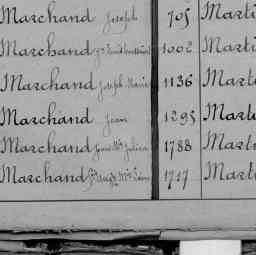 Marchand Joseph 705 Marti
Marchand 1002 Marti
Marchand Joseph Marie 1136 Marti
Marchand Jean 1295 Marti
Marchand Julien 1788 Marti
Marchand 1717 Marti